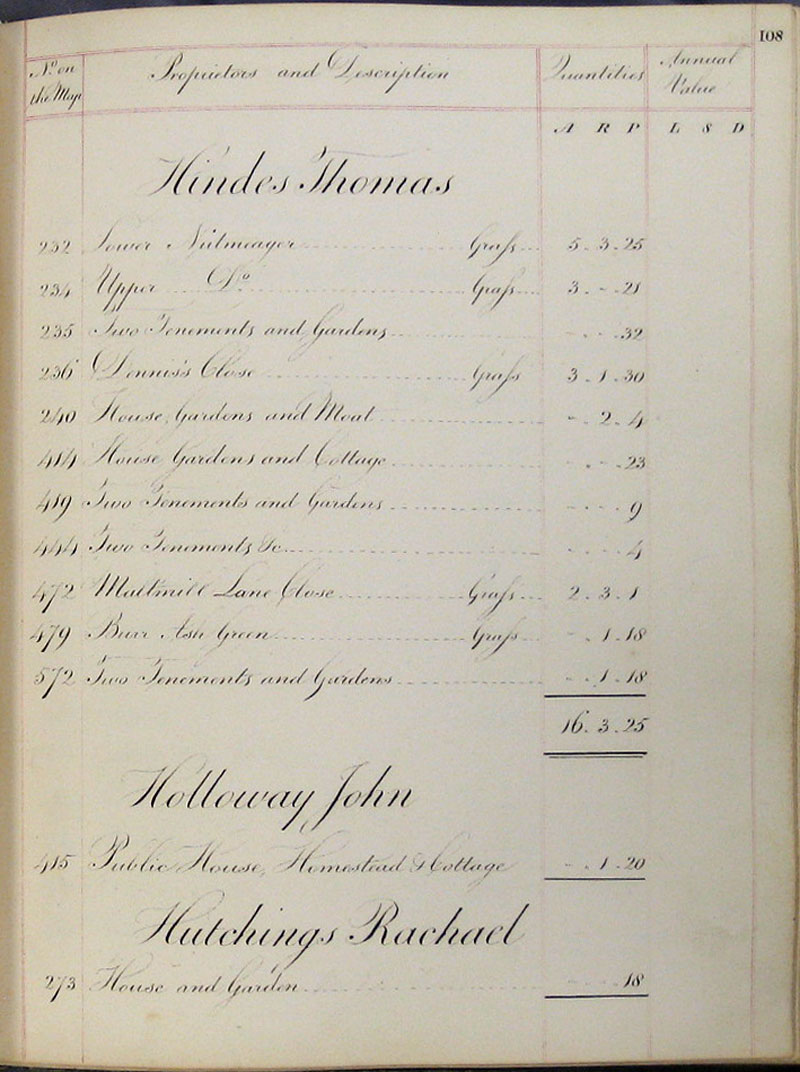 108
No. on the Map Proprietors and Description Quantities Annual Value
A R P L S D
Hindes Thomas
232 Lower Nutmeager Grass 5 . 3 . 25
234 Upper Do Grass 3 . - . 21
235 Two Tenements and Gardens - . - . 32
236 Dennis's Close Grass 3 . 1 . 30
240 House, Gardens and Moat - . 2 . 4
414 House Gardens and Cottage - . - . 23
419 Two Tenements and Gardens - . - . 9
444 Two Tenements &c - . - . 4
472 Maltmill Lane Close Grass 2 . 3 . 1
479 Burr Ash Green Grass - . 1 . 18
572 Two Tenements and Gardens - . 1 . 18
16 . 3 . 25
Holloway John
415 Public House, Homestead & Cottage - . 1 . 20
Hutchings Rachael
273 House and Garden - . - . 18